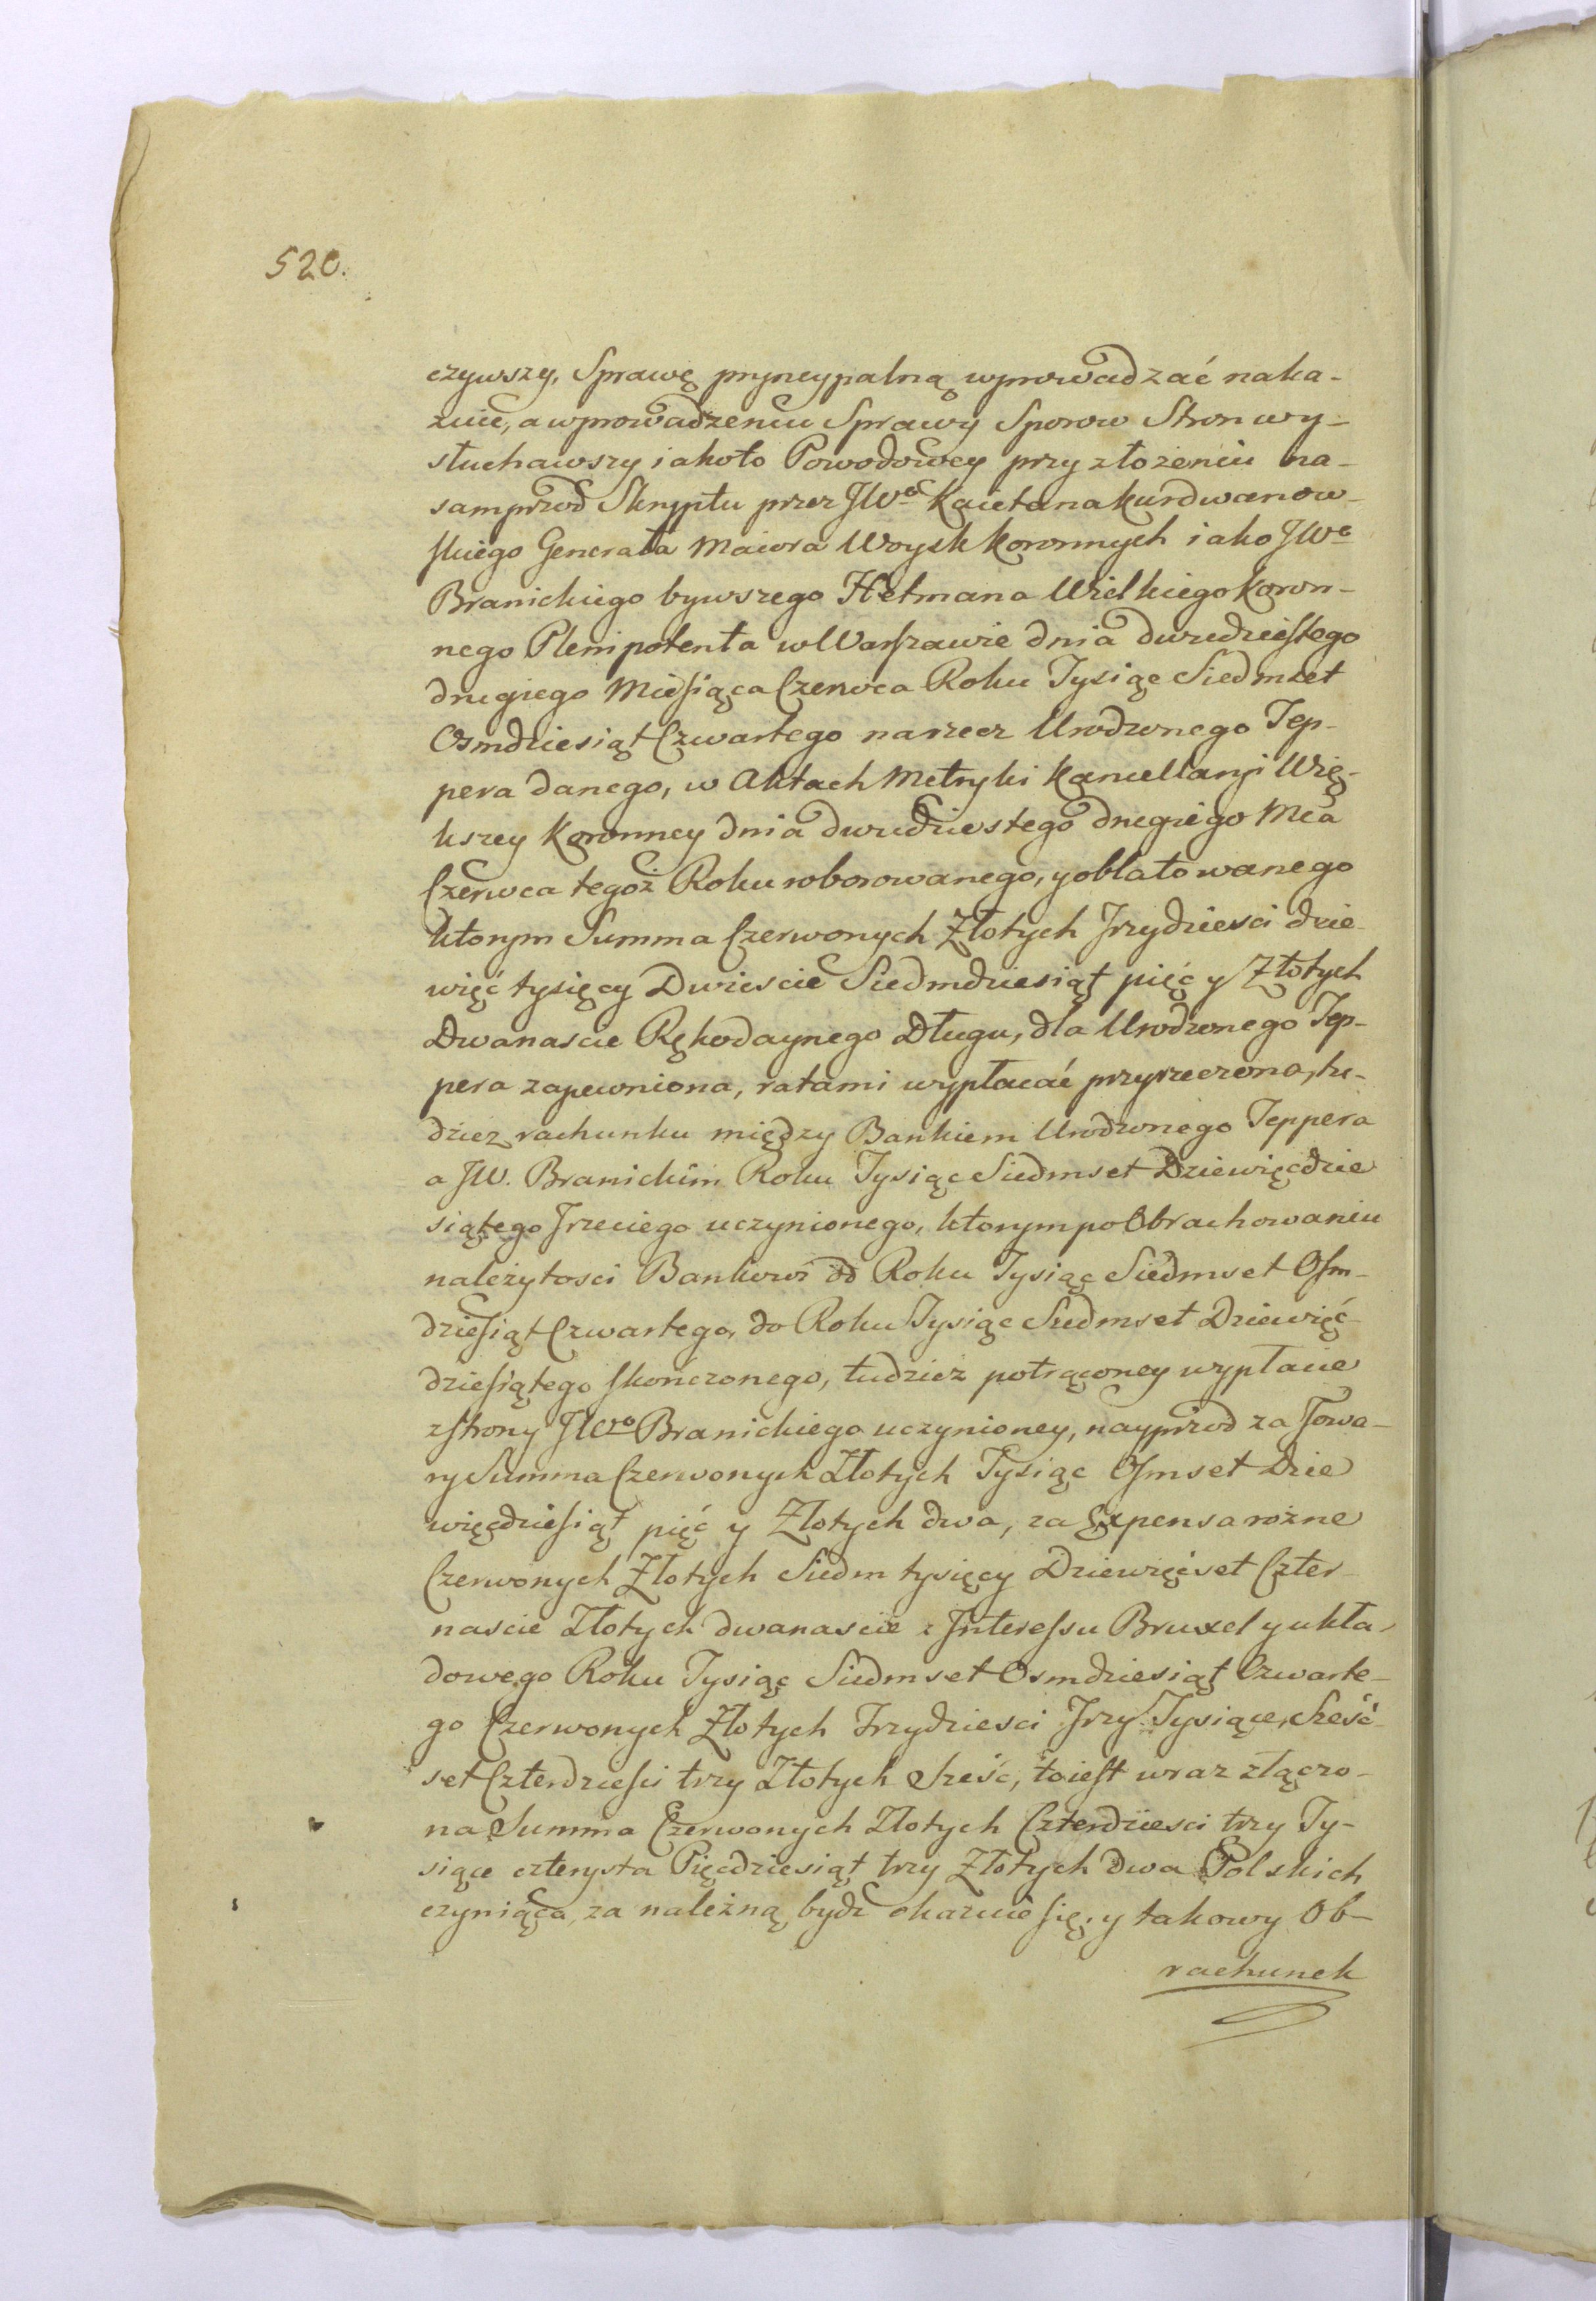 520.
czywszy, Sprawę pryncypalną wprowadzać naka-
zuie, a wprowadzeniu Sprawy Sporow Stron wy-
słuchawszy iakoto Powodowey przy złożeniu na-
samprzod Skryptu przez JWo Kaietana Kurdwanow-
skiego Generała Maiora Woysk Koronnych iako JWo
Branickiego bywszego Hetmana Wielkiego Koron-
nego Plenipotenta w Warszawie dnia dwudziestego
drugiego Miesiąca Czerwca Roku Tysiąc Siedmset
Osmdziesiąt Czwartego na rzecz Urodzonego Tep-
pera danego, w Aktach Metryki Kancellaryi Więk-
kszey Koronney dnia dwudziestego drugiego Mca
Czerwca tegoż Roku roborowanego, y oblatowanego
którym Summa Czerwonych Złotych Trzydziesci dzie-
więć tysięcy Dwiescie Siedmdziesiąt pięć y Złotych
Dwanascie Rękodaynego Długu, dla Urodzonego Tep-
pera zapewniona, ratami wypłacać przyrzeczona, tu-
dziez rachunku między Bankiem Urodzonego Teppera
a JW. Branickim Roku Tysiąc Siedmset Dziewięcdzie
siątego Trzeciego uczynionego, ktorym po Obrachowaniu
należytosci Bankowi od Roku Tysiąc Siedmset Osm-
dziesiąt Czwartego, do Roku Tysiąc Siedmset Dziewięć-
dziesiątego skończonego, tudzież potrąconey wypłacie
z strony JWo Branickiego uczynioney, nayprzod za Towa-
ry Summa Czerwonych Złotych Tysiąc Osmset Dzie
więcdziesiąt pięć y Złotych dwa, za Expensa rożne
Czerwonych Złotych Siedm tysięcy Dziewięćset Czter-
nascie Złotych dwanascie z Interessu Bruxel y ukła-
dowego Roku Tysiąc Siedmset Osmdziesiąt Czwarte-
go Czerwonych Złotych Trzydziesci Trzy Tysiące, Sześć-
set Czterdziesci trzy Złotych Sześć, to iest wraz złączo-
na Summa Czerwonych Złotych Czterdziesci trzy Ty-
siące czterysta Pięcdziesiąt trzy Złotych dwa Polskich
czyniąca, za należną bydź okazuie się; y takowy Ob-
rachunek